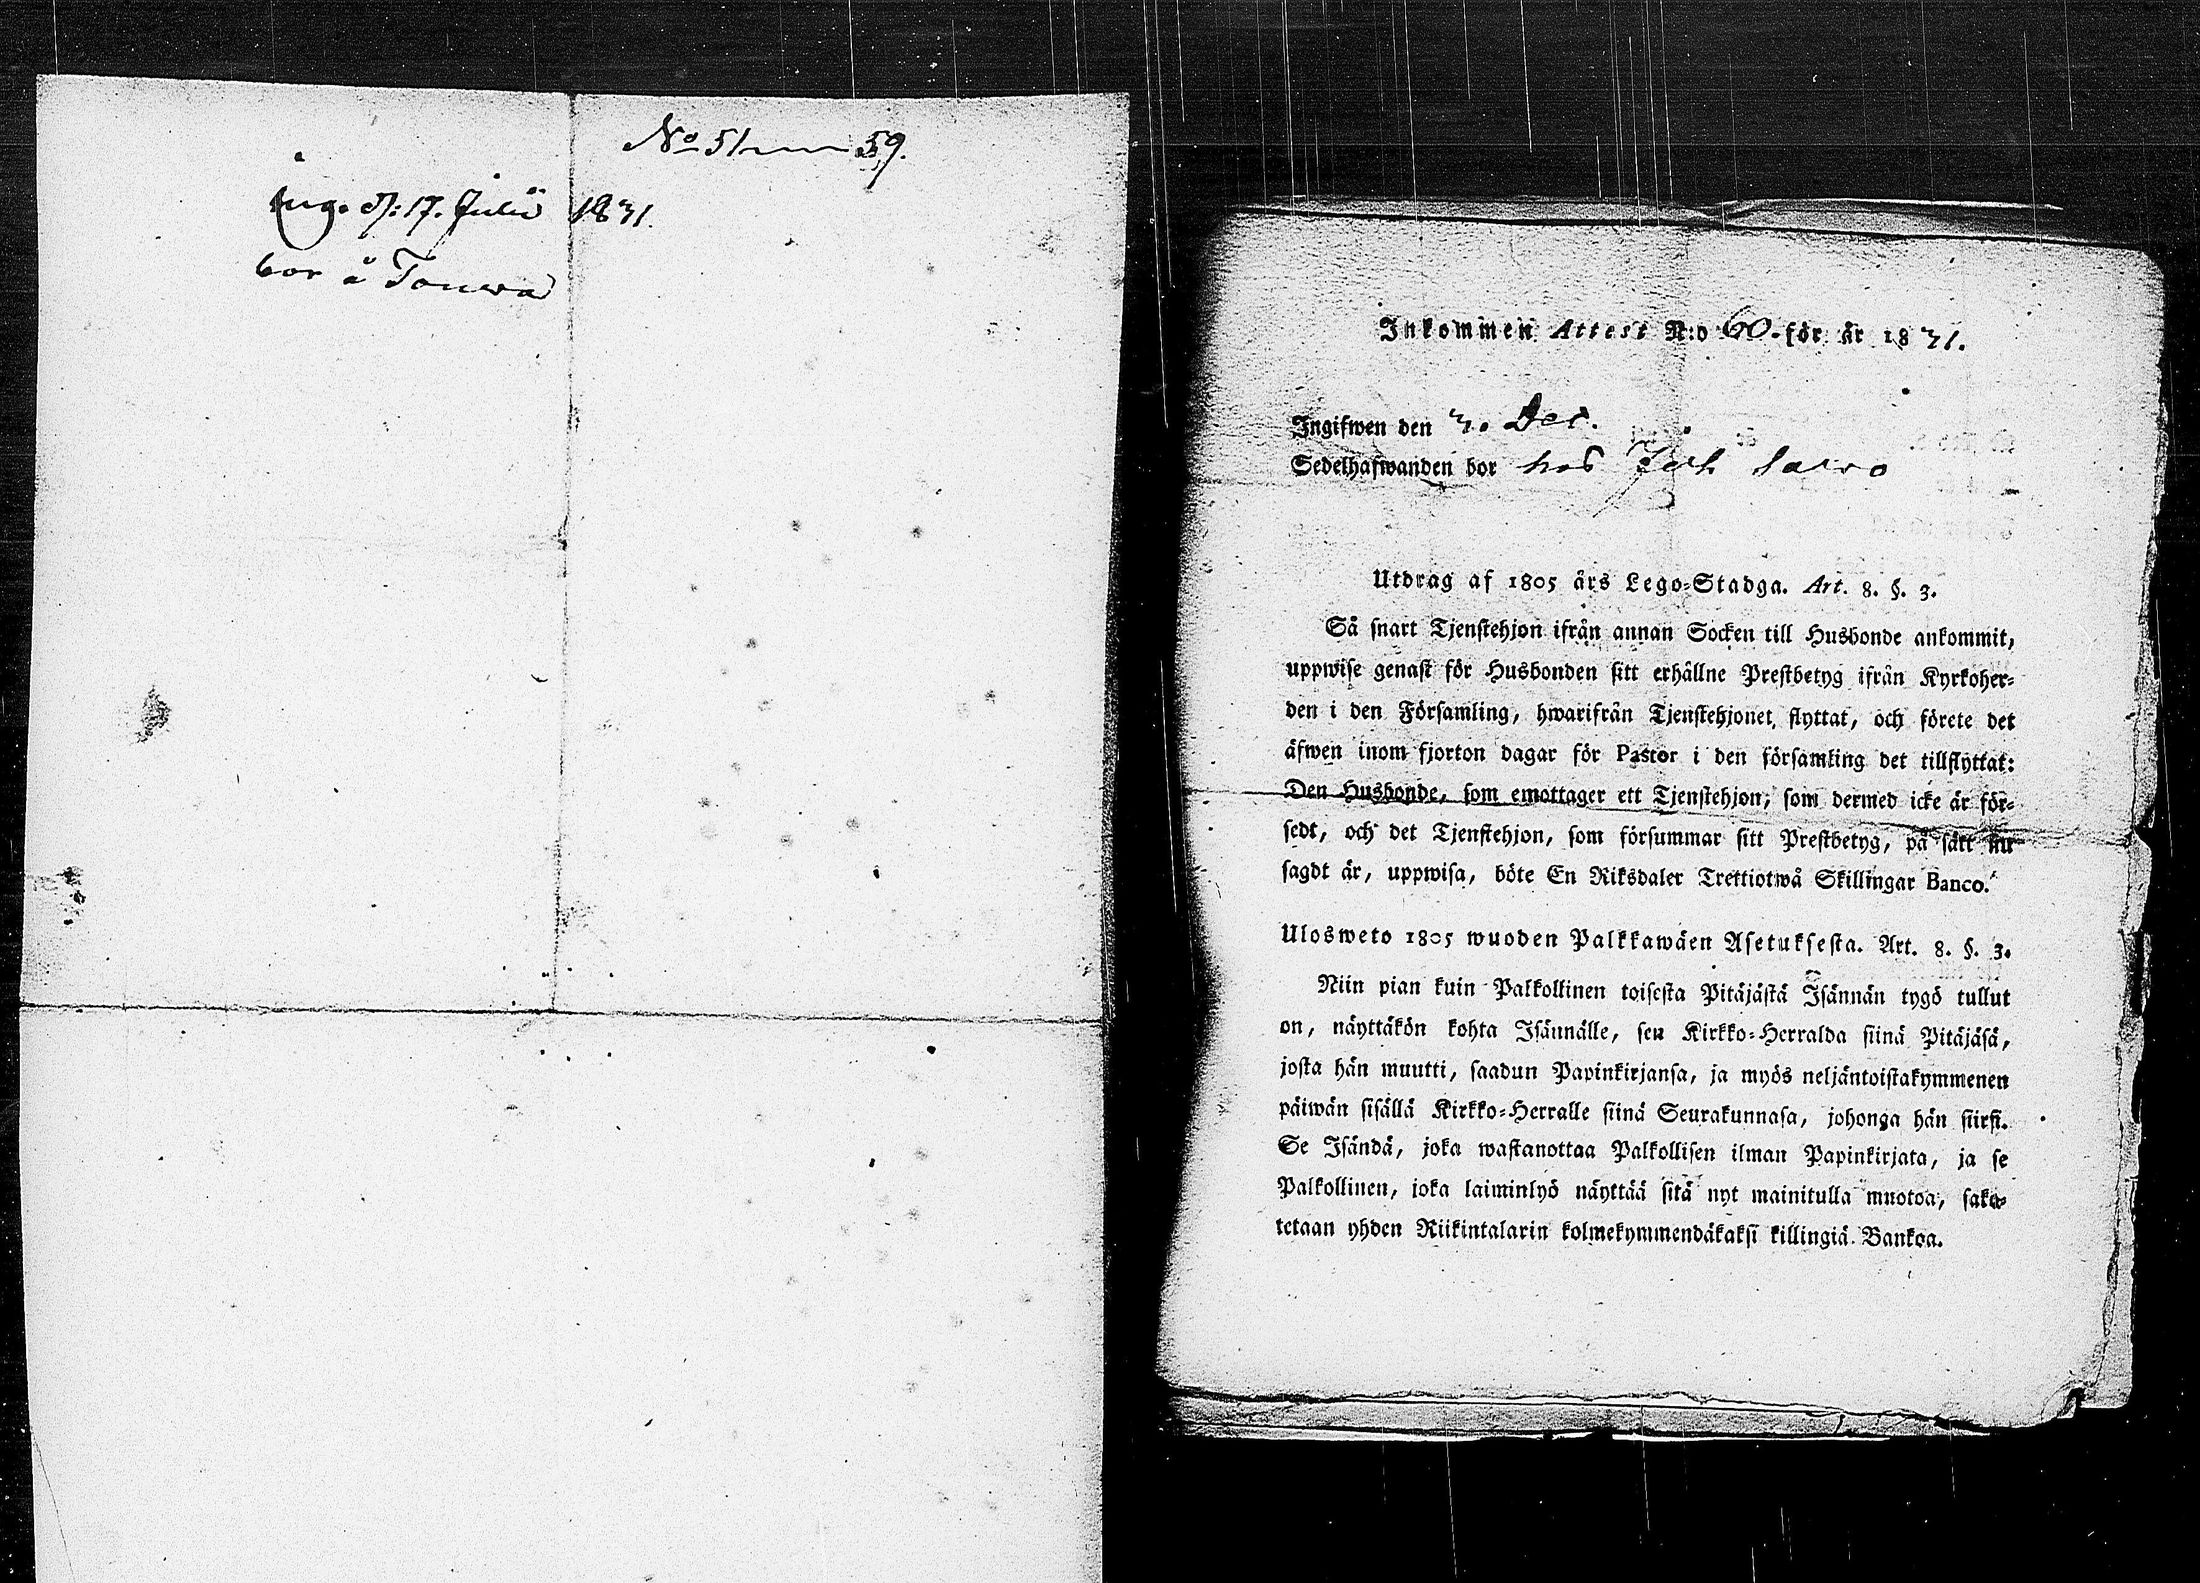 No 51 — 59.
ing. d: 17. Julii 1831.
bor å Touwa
Inkommen Attest N:o 60. för år 1831.
Ingifwen den 3. Dec.
Sedelhafwanden bor hos
Utdrag af 1805 års Lego-Stadga. Art. 8. §. 3.
Så snart Tjenstehjon ifrån annan Socken till Husbonde ankommit,
uppwise genast för Husbonden sitt erhållne Prestbetyg ifrån Kyrkoher-
den i den Församling, hwarifrån Tjenstehjonet flyttat, och förete det
äfwen inom fjorton dagar för Pastor i den församling det tillflyttat:
Den Husbonde, som emottager ett Tjenstehjon, som dermed icke är för-
sedt, och det Tjenstehjon, som försummar sitt Prestbetyg, på sätt nu
sagdt är, uppwisa, böte En Riksdaler Trettiotwå Skillingar Banco.
Ulosweto 1805 wuoden Palkkawäen Asetuksesta. Art. 8. §. 3.
Niin pian kuin Palkollinen toisesta Pitäjästä Isännän tygö tullut
on, näyttäkön kohta Isännälle, sen Kirkko-Herralda siinä Pitäjäsä,
josta hän muutti, saadun Papinkirjansa, ja myös neljäntoistakymmenen
päiwän sisällä Kirkko-Herralle siinä Seurakunnasa, johonga hän siirsi.
Se Isändä, joka wastanottaa Palkollisen ilman Papinkirjata, ja se
Palkollinen, joka laiminlyö näyttää sitä nyt mainitulla muotoa, sako-
tetaan yhden Riikintalarin kolmekymmendäkaksi killingiä Bankoa.